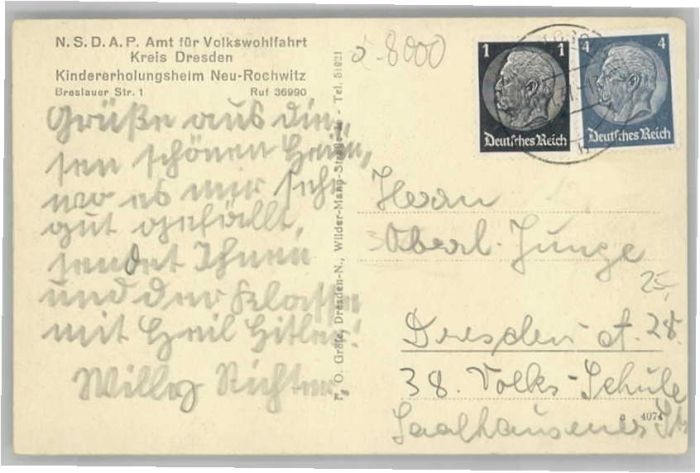 N.S.D.A.P. Amt für Volkswohlfahrt
Kreis Dresden
Kindererholungsheim Neu-Rochwitz
Breslauer Str. 1 Ruf 36990
Grüße aus die-
sen schönen Heim,
wo es mir sehr
gut gefällt,
sendet Ihnen
und der Klasse
mit Heil Hitler!
Willy Richter
P. O. Große, Dresden-N., Wilder-Mann-Straße - Tel. 51021
8000
1 1
Deutsches Reich
4 4
Deutsches Reich
Herrn
Oberl. Junge
25,-
Dresden A. 28.
38. Volks-Schule
Saalhausener Str
4074